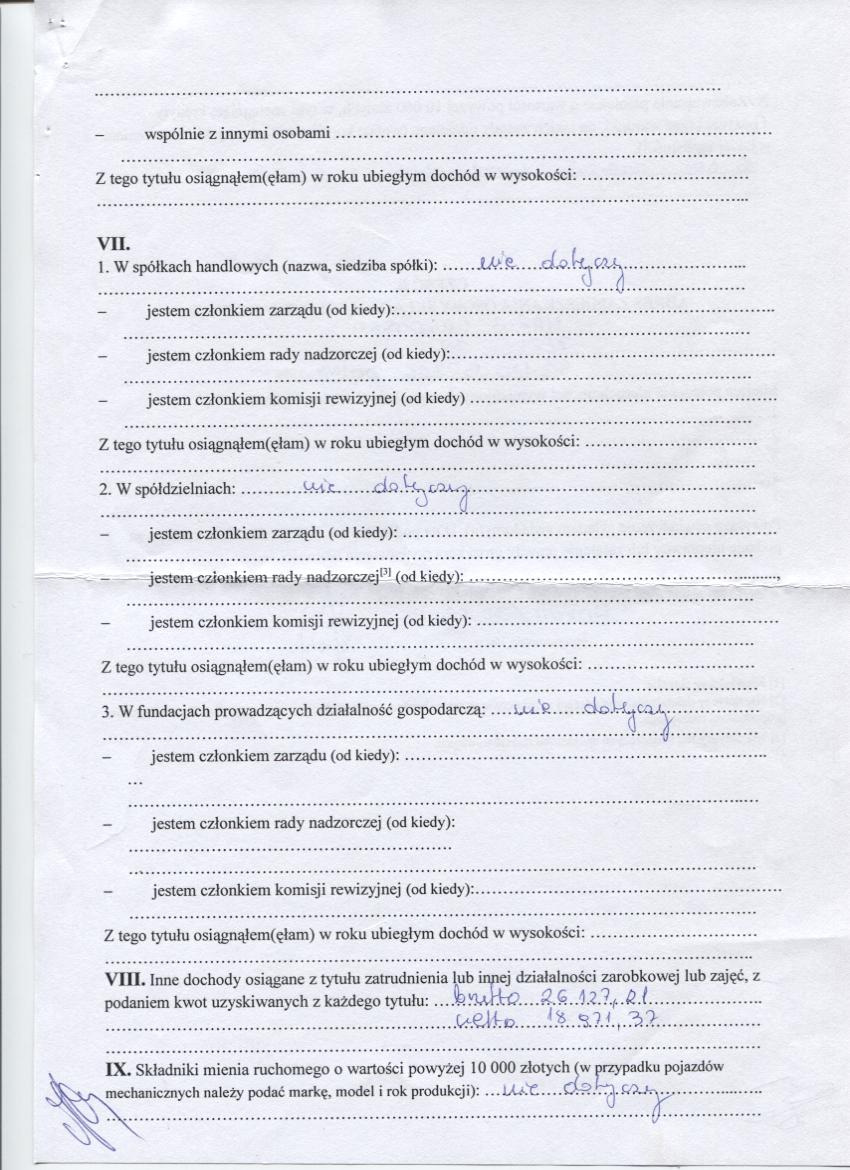 – wspólnie z innymi osobami ........................
Z tego tytułu osiągnąłem(ęłam) w roku ubiegłym dochód w wysokości: ........................
VII.
1. W spółkach handlowych (nazwa, siedziba spółki): ...... nie dotyczy ......
– jestem członkiem zarządu (od kiedy):........................
– jestem członkiem rady nadzorczej (od kiedy):........................
– jestem członkiem komisji rewizyjnej (od kiedy) ........................
Z tego tytułu osiągnąłem(ęłam) w roku ubiegłym dochód w wysokości: ........................
2. W spółdzielniach: ...... nie dotyczy ......
– jestem członkiem zarządu (od kiedy): ........................
– jestem członkiem rady nadzorczej[3] (od kiedy): ........................,
– jestem członkiem komisji rewizyjnej (od kiedy): ........................
Z tego tytułu osiągnąłem(ęłam) w roku ubiegłym dochód w wysokości: ........................
3. W fundacjach prowadzących działalność gospodarczą: ...... nie dotyczy ......
– jestem członkiem zarządu (od kiedy): ........................
...
– jestem członkiem rady nadzorczej (od kiedy):
– jestem członkiem komisji rewizyjnej (od kiedy):........................
Z tego tytułu osiągnąłem(ęłam) w roku ubiegłym dochód w wysokości: ........................
VIII. Inne dochody osiągane z tytułu zatrudnienia lub innej działalności zarobkowej lub zajęć, z
podaniem kwot uzyskiwanych z każdego tytułu: ... brutto 26.127,21
netto 18 971,37
IX. Składniki mienia ruchomego o wartości powyżej 10 000 złotych (w przypadku pojazdów
mechanicznych należy podać markę, model i rok produkcji): ... nie dotyczy ......